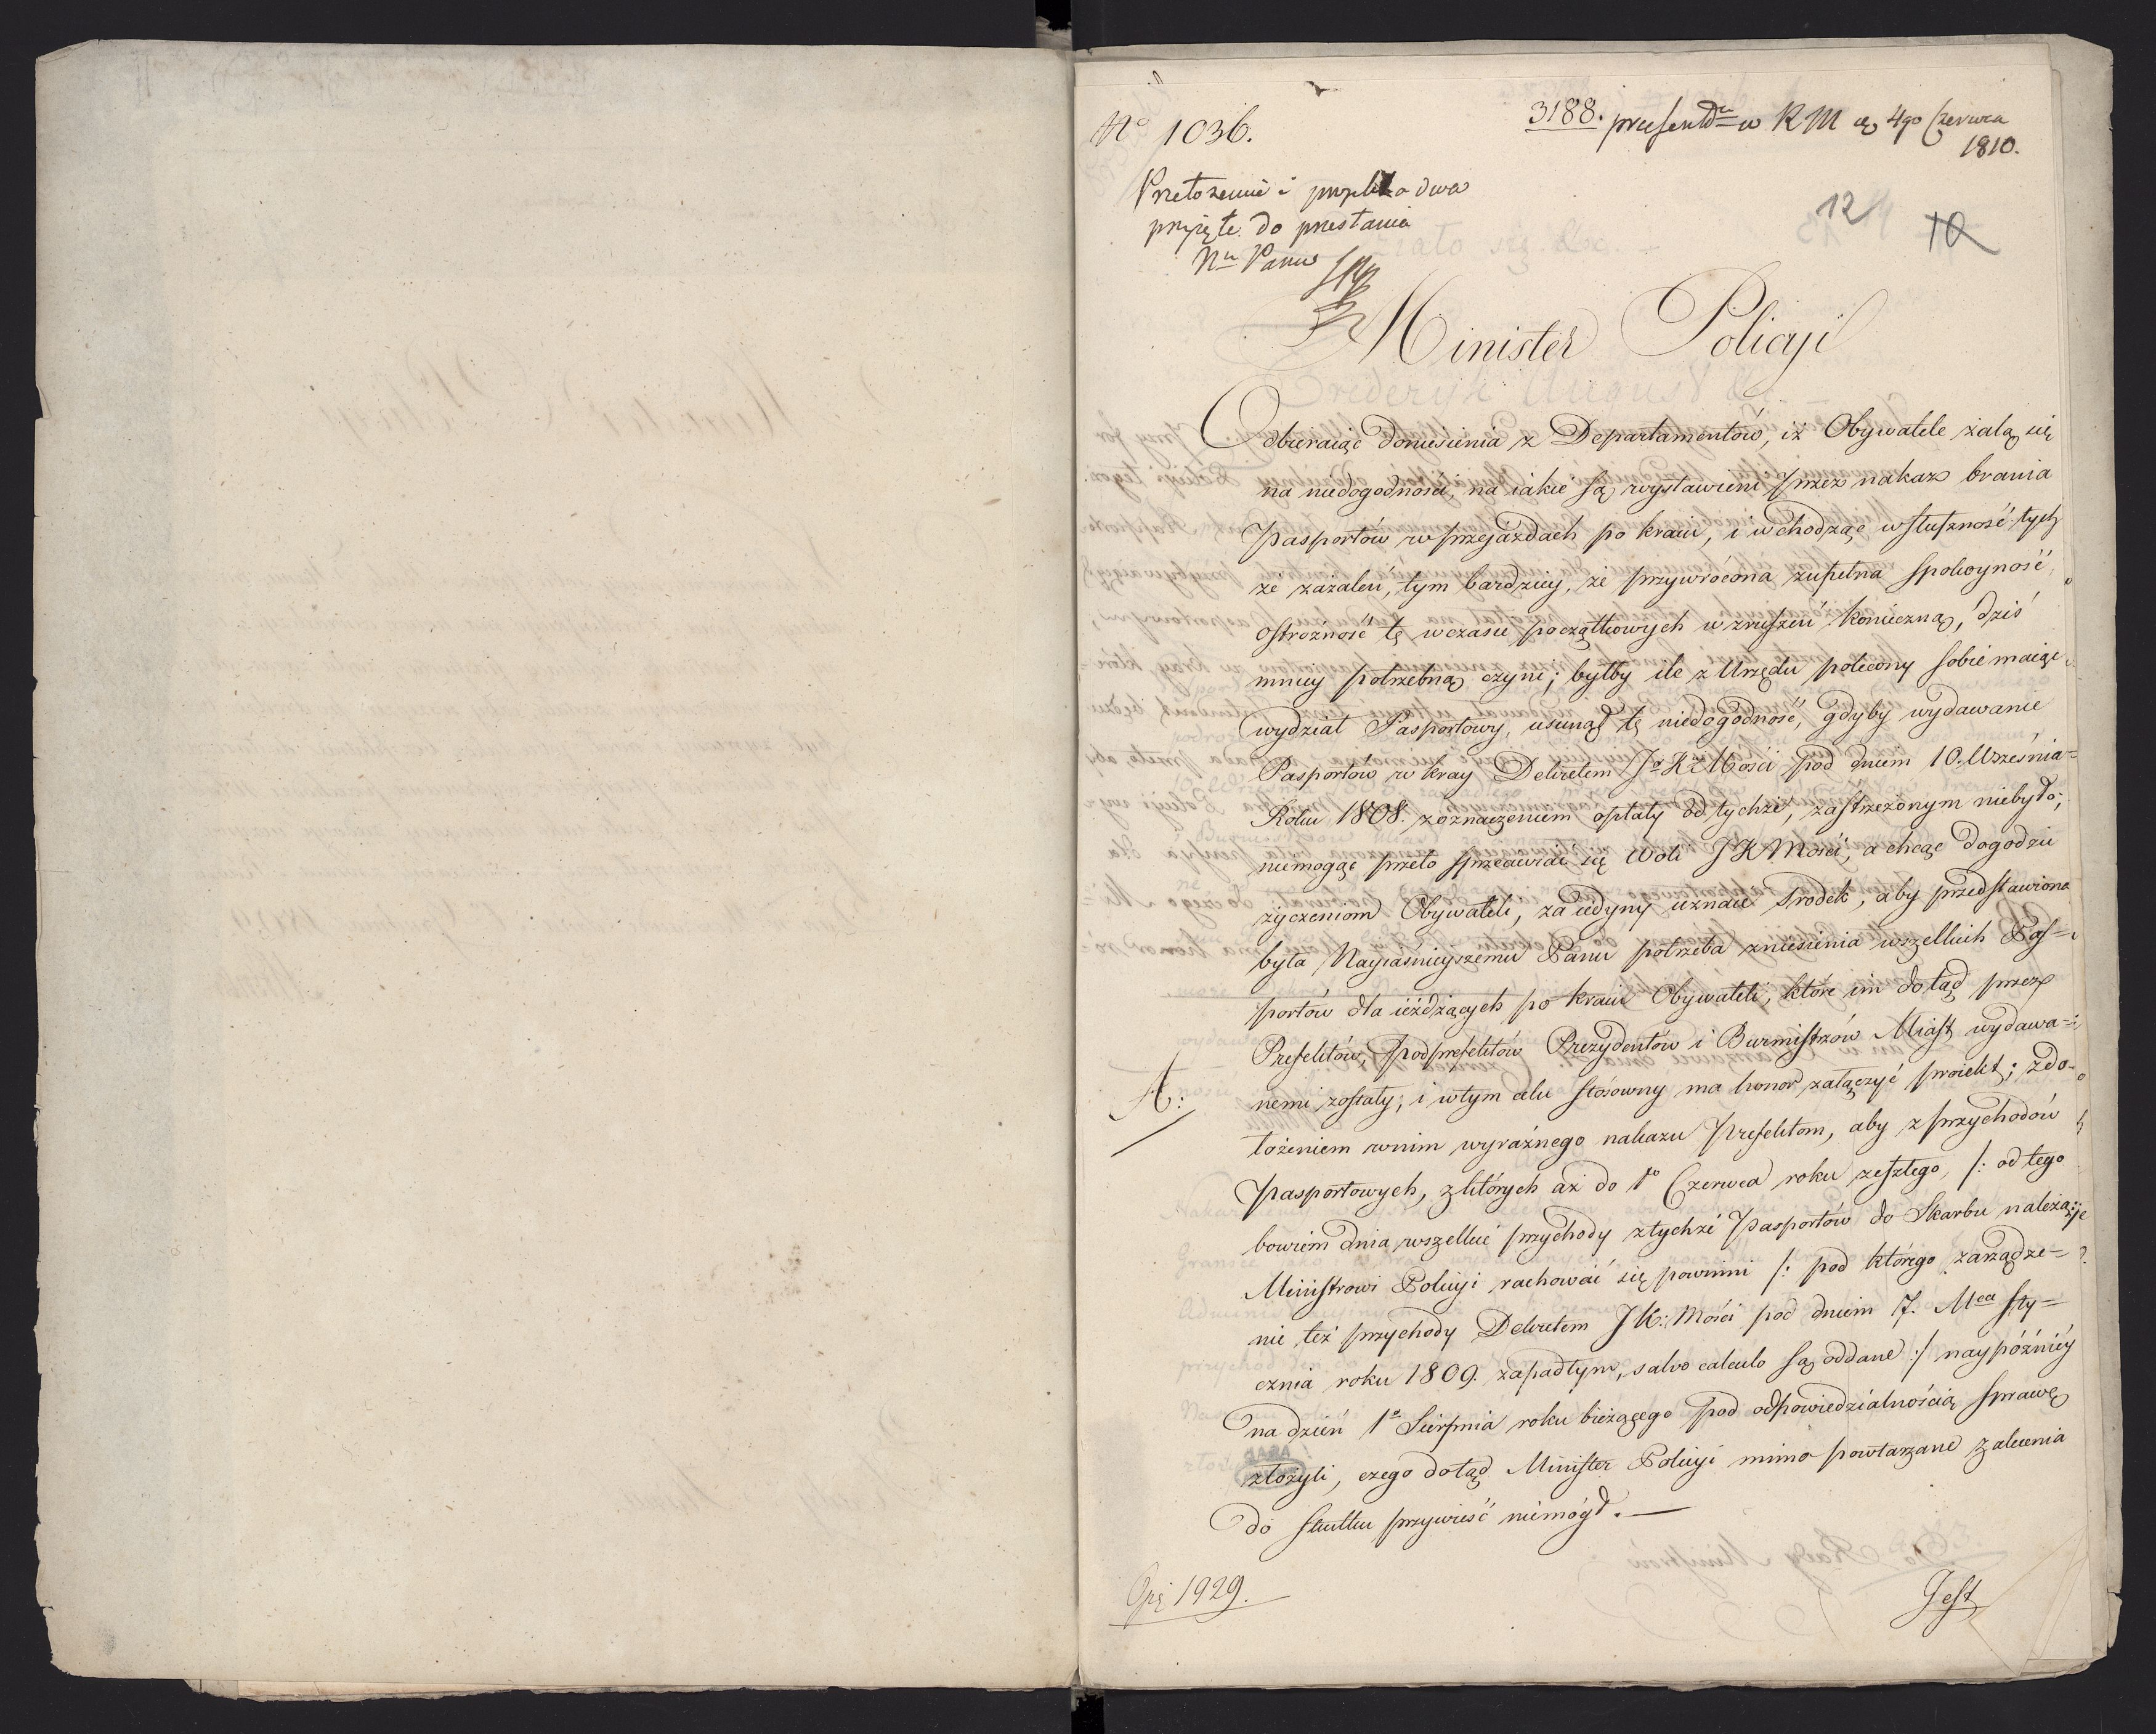 No 1036.
3188. presentdu w R M d. 4go Czerwca
1810.
Przełożenie i proiekta dwa
przyięte do przesłania
Nu Panu
12 10
Minister Policyi
Odbieraiąc doniesienia z Departamentów, iż Obywatele żalą się
na niedogodności, na iakie są wystawieni przez nakaz brania
Pasportów w przejazdach po kraiu, i wchodząc w słuszność tych
że zażaleń, tym bardziey, że przywrócona zupełna spokoyność
ostrożność tę w czasie początkowych wzruszeń konieczną, dziś
mniey potrzebną czyni; byłby ile z Urzędu polecony sobie maiąc
wydział Pasportowy, usunął tę niedogodność, gdyby wydawanie
Pasportów w kray Dekretem Jo Kr Mości pod dniem 10. Września
Roku 1808. z oznaczeniem opłaty od tychże, zastrzeżonym niebyło;
niemogąc przeto sprzeciwiać się Woli J K Mości, a chcąc dogodzić
życzeniom Obywateli, za iedyny uznaie srodek, aby przedstawiona
była Nayiaśnieyszemu Panu potrzeba zniesienia wszelkich Pas=
portów dla ieżdżących po kraiu Obywateli, które im dotąd przez
Prefektów, Podprefektów Prezydentów i Burmistrzów Miast wydawa=
A: nemi zostały; i w tym celu stósowny ma honor załączyć proiekt; z do=
łożeniem w nim wyraźnego nakazu Prefektom, aby z przychodów
Pasportowych, z których aż do 1o Czerwca roku zeszłego, /: od tego
bowiem dnia wszelkie przychody z tychże Pasportów do Skarbu należą :/
Ministrowi Policyi rachować się powinni /: pod którego zarządze=
nie też przychody Dekretem J K: Mości pod dniem 7. Mca Sty=
cznia roku 1809. zapadłym, salvo calculo są oddane :/ naypóźniey
na dzień 1o Sierpnia roku bieżącego pod odpowiedzialnością sprawę
złożyli, czego dotąd Minister Policyi mimo powtarzane zalecenia
do skutku przywieść niemógł. —
1929.
Jest